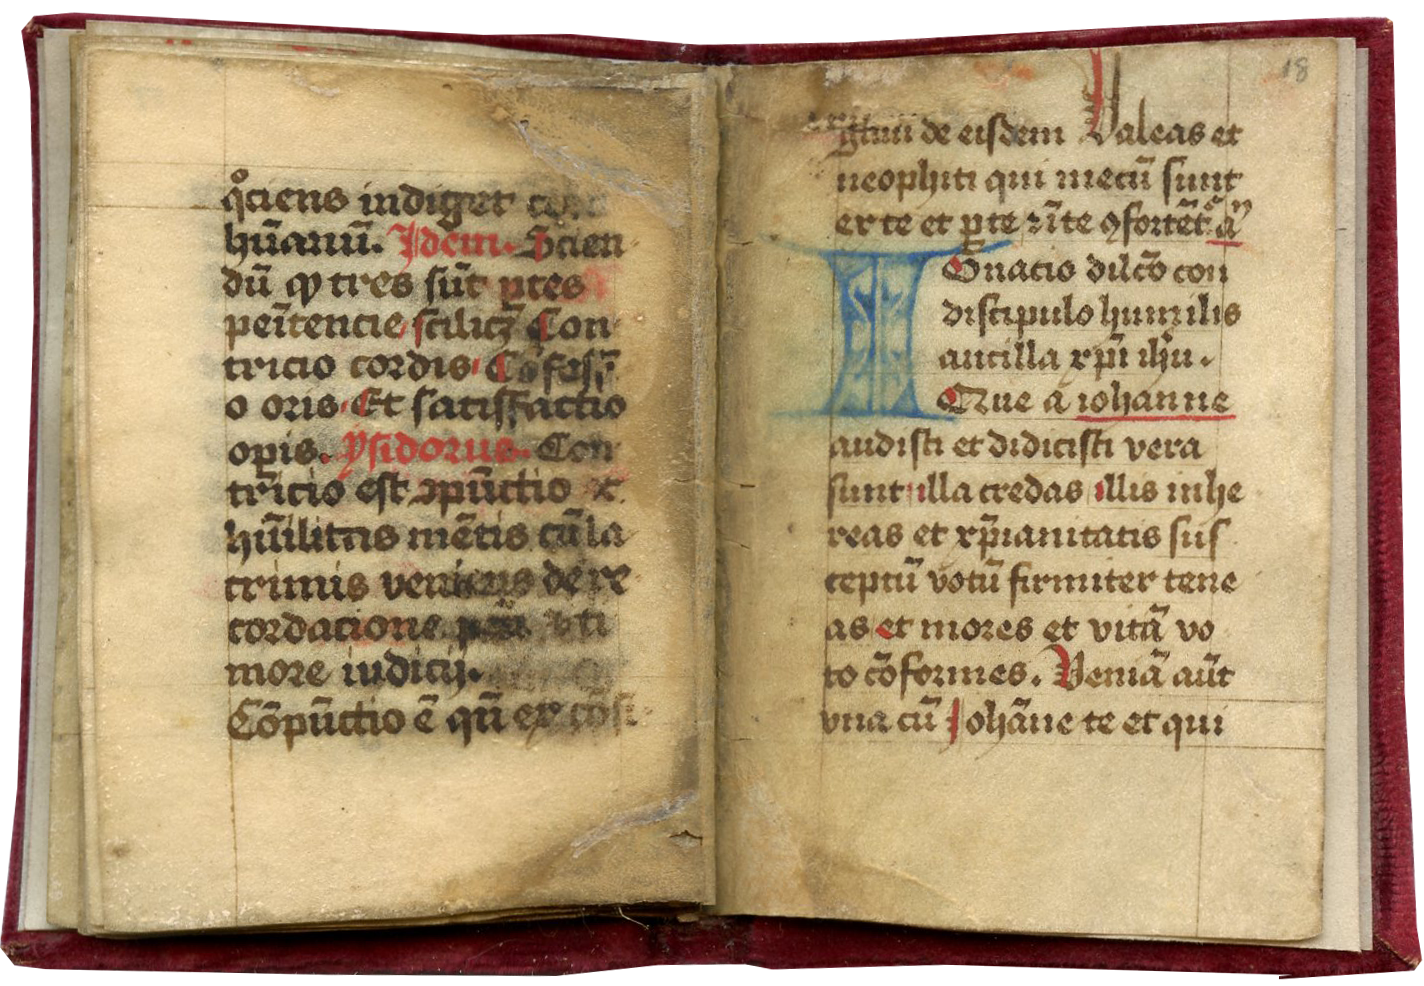 qͦciens indiget
hūanū. Idem. Scien
dū ꝙ tres sūt ꝑtes
peītencie scilicꝫ Con
tricio cordis Cōfess
o oris Et satisfactio
oꝑis. ysidorus. Con
tricio est ↄpūctio ⁊
hūilitas mētis cū la
crimis veniens de re
cordacione ti
more iudicij.
Cōpūctio ē qn̄ ex
18
de eisdem Valeas et
neophiti qui mecū sunt
ex te et ꝑ te ꝯfortēt᷑
Ignacio dilcō con
discipulo humilis
ancilla xp̄i ih̄u.
Que a iohanne
audisti et didicisti vera
sunt illa credas illis inhe
reas et xp̄ianitatis sus
ceptū votū firmiter tene
as et mores et vitā vo
to cōformes. Veniā aūt
vna cū Iohāne te et qui